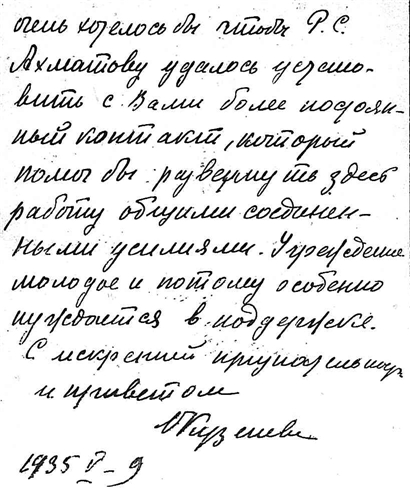 очень хотелось бы чтобы Р.С.
Ахматову удалось устано-
вить с Вами более постоян-
ный контакт, который
помог бы развернуть здесь
работу общими соединен-
ными усилиями. Учреждение
молодое и потому особенно
нуждается в поддержке.
С искренней признательностью
и приветом
1935 V–9